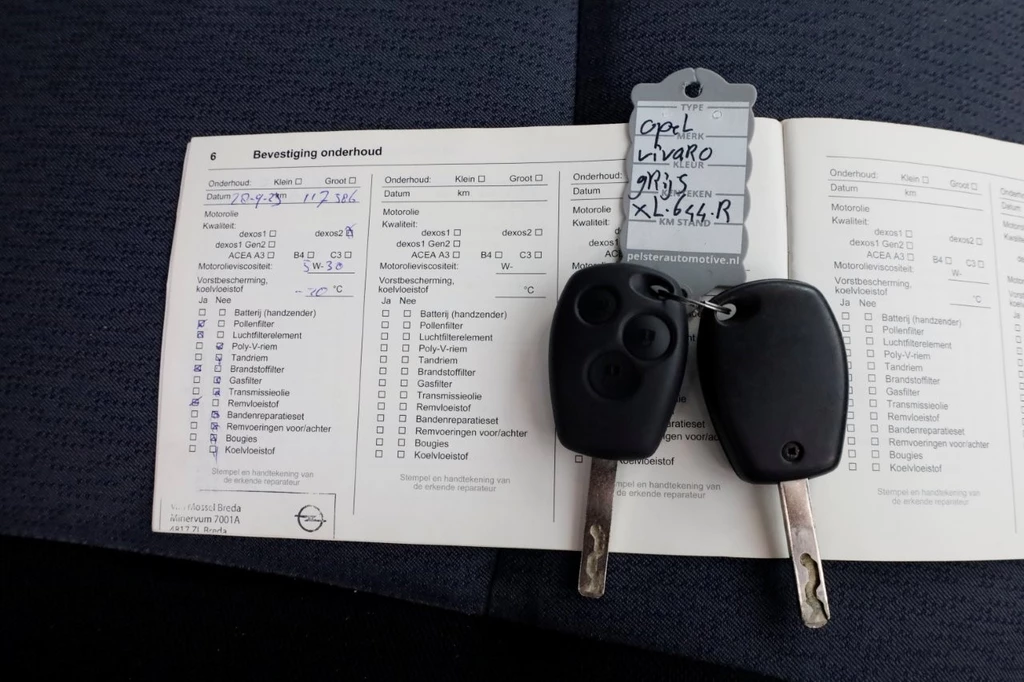 6 Bevestiging onderhoud
Onderhoud: Klein ☐ Groot ☐
Datum km 117386
Motorolie
Kwaliteit:
dexos1 ☐ dexos2 ☒
dexos1 Gen2 ☐
ACEA A3 ☐ B4 ☐ C3 ☐
Motorolieviscositeit: 5 W-30
Vorstbescherming,
koelvloeistof °C
Ja Nee
Batterij (handzender)
Pollenfilter
Luchtfilterelement
Poly-V-riem
Tandriem
Brandstoffilter
Gasfilter
Transmissieolie
Remvloeistof
Bandenreparatieset
Remvoeringen voor/achter
Bougies
Koelvloeistof
Stempel en handtekening van
de erkende reparateur
Mossel Breda
Minervum 7001A
4817 ZL Breda
Onderhoud: Klein ☐ Groot ☐
Datum km
Motorolie
Kwaliteit:
dexos1 ☐ dexos2 ☐
dexos1 Gen2 ☐
ACEA A3 ☐ B4 ☐ C3 ☐
Motorolieviscositeit: W-
Vorstbescherming,
koelvloeistof °C
Ja Nee
Batterij (handzender)
Pollenfilter
Luchtfilterelement
Poly-V-riem
Tandriem
Brandstoffilter
Gasfilter
Transmissieolie
Remvloeistof
Bandenreparatieset
Remvoeringen voor/achter
Bougies
Koelvloeistof
Stempel en handtekening van
de erkende reparateur
Onderhoud:
Datum
Motorolie
Kwaliteit:
TYPE
opel
MERK
vivaRO
KLEUR
gRijs
KENTEKEN
XL-644-R
KM STAND
pelsterautomotive.nl
Koelvloeistof
de erkende reparateur
Onderhoud: Klein ☐ Groot ☐
Datum km
Motorolie
Kwaliteit:
dexos1 ☐ dexos2 ☐
dexos1 Gen2 ☐
ACEA A3 ☐ B4 ☐ C3 ☐
Motorolieviscositeit: W-
Vorstbescherming,
koelvloeistof °C
Nee
Batterij (handzender)
Pollenfilter
Luchtfilterelement
Poly-V-riem
Tandriem
Brandstoffilter
Gasfilter
Transmissieolie
Remvloeistof
Bandenreparatieset
Remvoeringen voor/achter
Bougies
Koelvloeistof
Stempel en handtekening van
de erkende reparateur